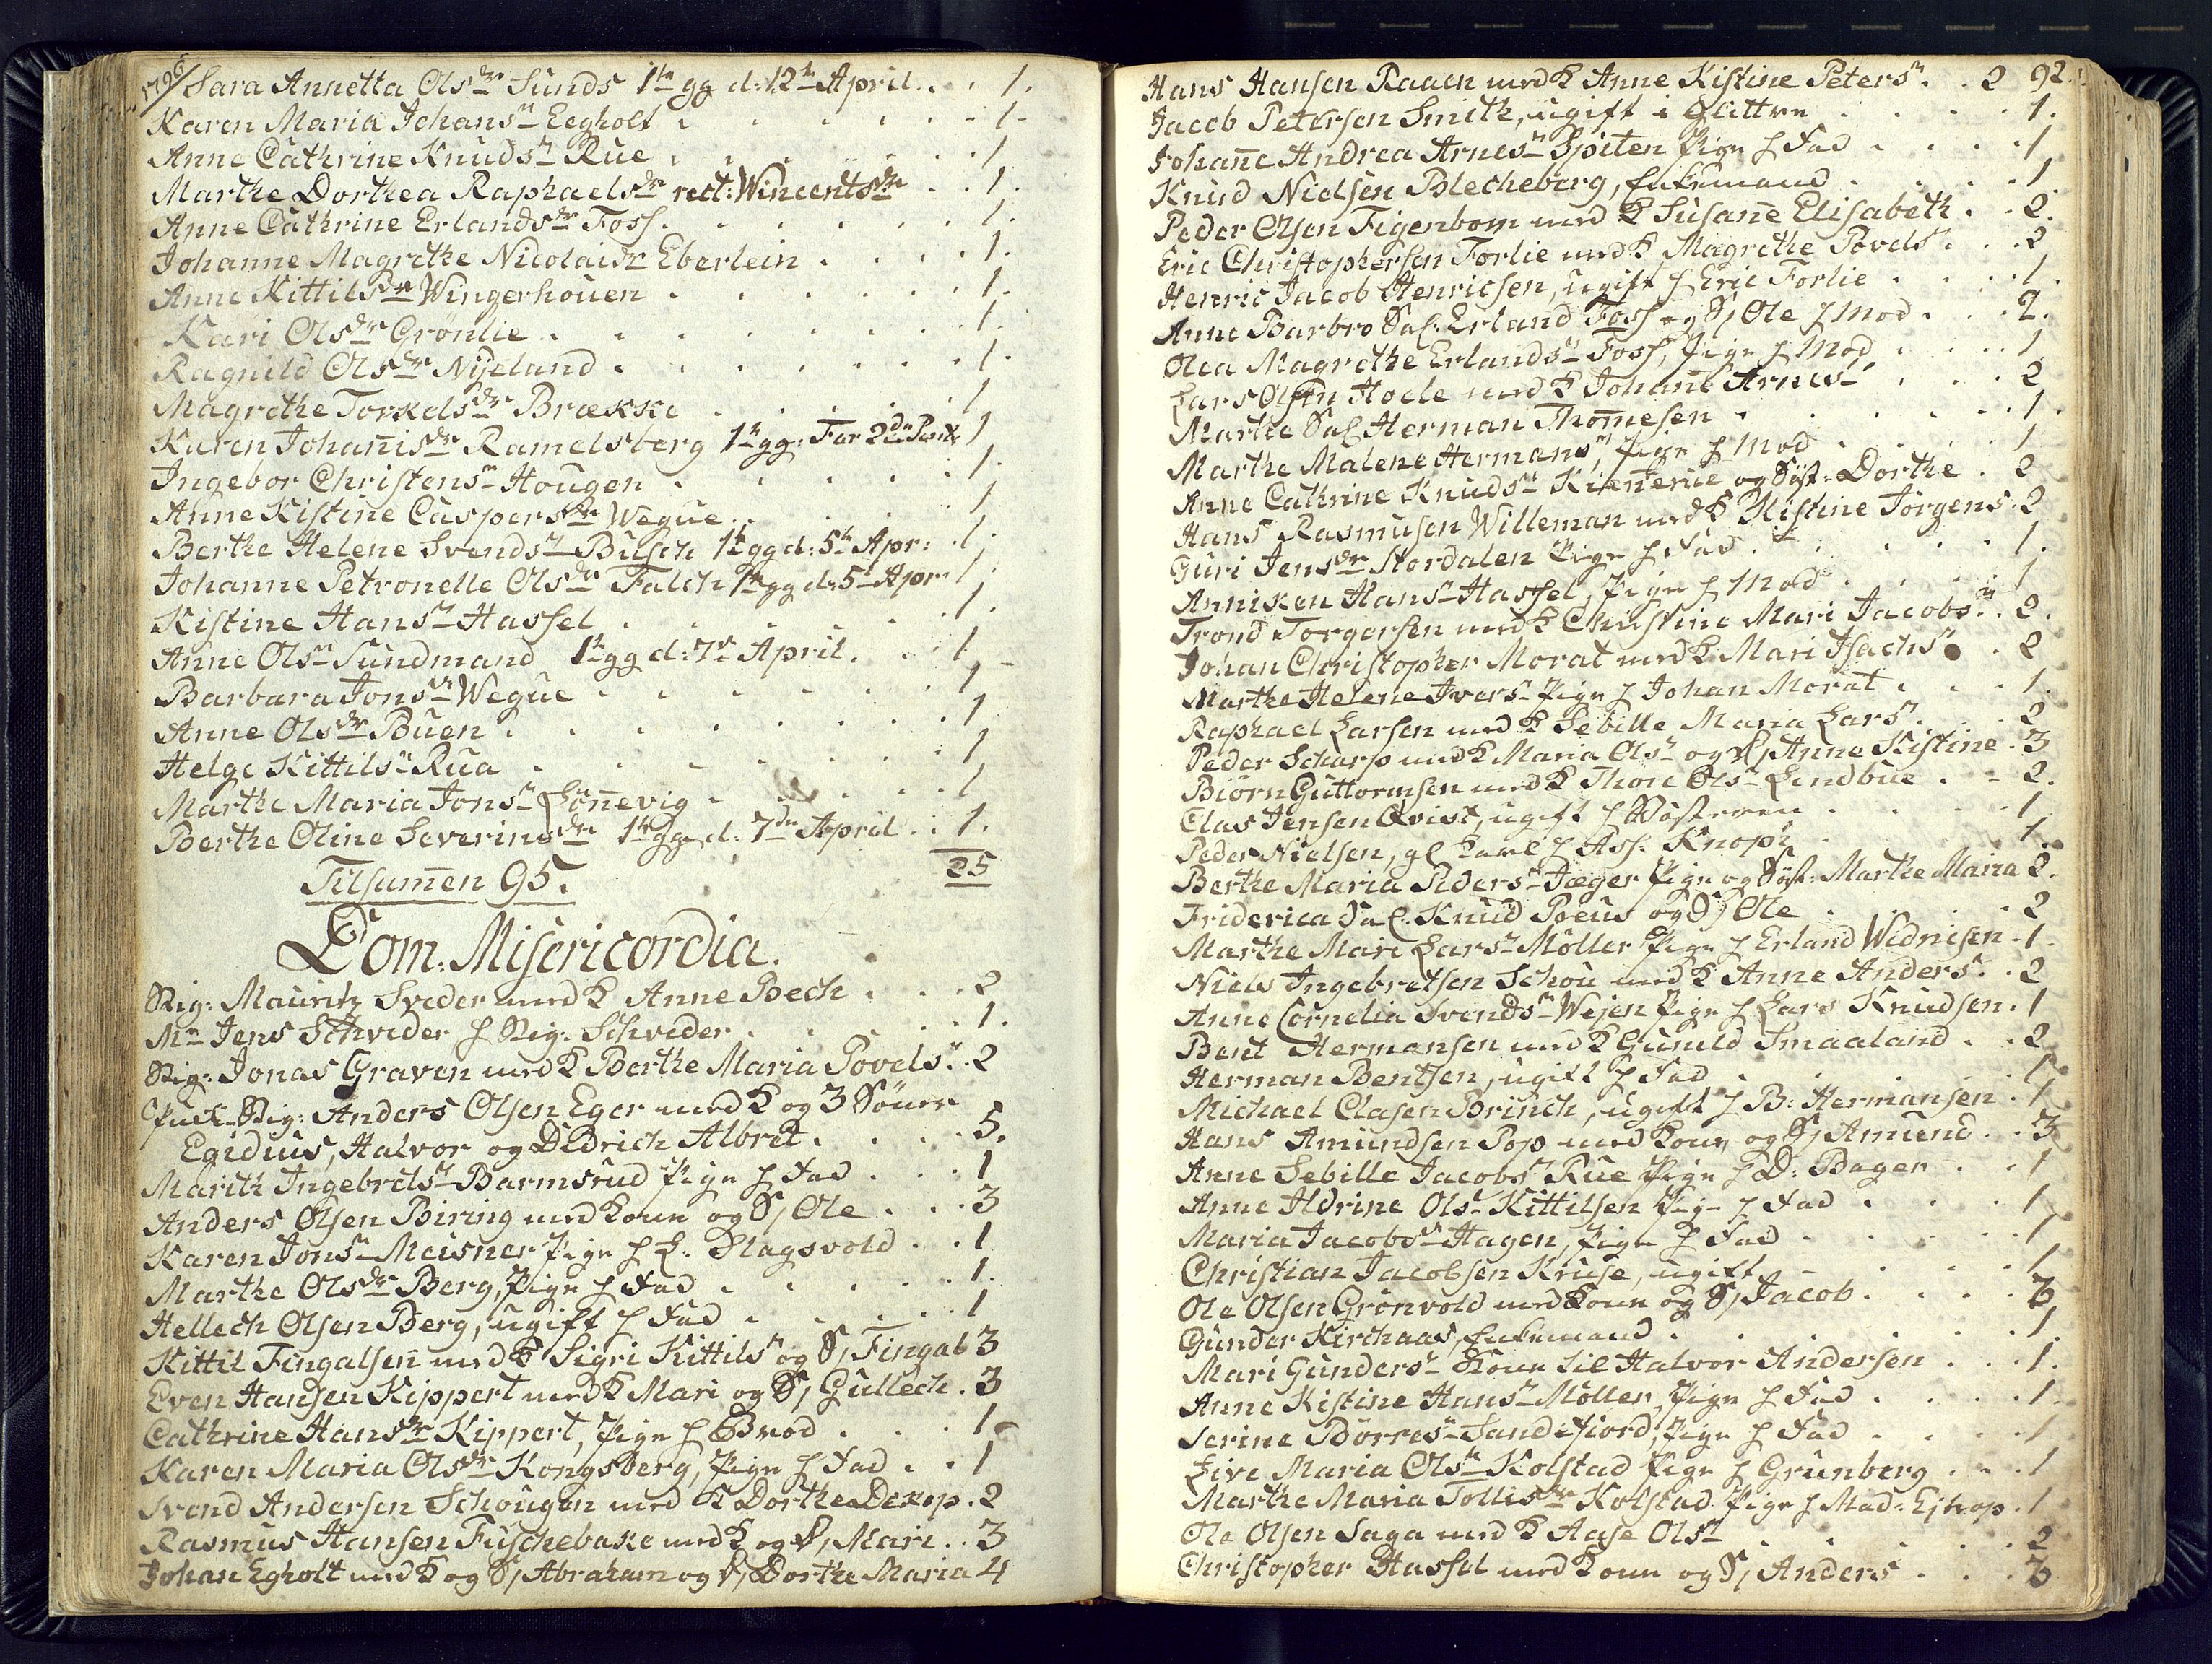 1796
Sara Annetta Olsdr Sunds 1te gg d: 12te April . . 1.
Karen Maria Johansdr Eegholt . . . 1
Anne Cathrine Knudsdr Rue . . . 1
Marthe Dorthea Raphaelsdr rect: Wincentsdr . . 1.
Anne Cathrine Erlandsdr Foss . . . 1.
Johanne Magrethe Nicolaidr Eberlein . . . 1.
Anne Kittilsdr Wingerhouen . . . 1.
Kari Olsdr Grönlie . . . 1.
Ragnild Olsdr Nyeland . . . 1.
Magrethe Torkelsdr Brække . . . 1
Karen Johannisdr Ramelsberg 1te gg: For 2den 1
Ingebor Christensdr Hougen . . . 1.
Anne Kistine Caspersdr Wegue . . . 1
Berthe Helene Svendsdr Busch 1te gg d: 5te Apr: . 1.
Johanne Petronelle Olsdr Falch 1te gg d: 5te Apr: 1.
Kistine Hansdr Hassel . . . 1.
Anne Olsdr Sundmand 1te gg d: 7de April . . 1
Barbara Jonsdr Wegue . . . 1
Anne Olsdr Buen . . . 1
Helge Kittilsdr Rua . . . 1
Marthe Maria Jonsdr Lönnevig . . . 1
Berthe Oline Severinsdr 1te gg d: 7de April . . 1.
Tilsummen 95. 25
Dom: Misericordia.
Sig: Mauritz Sveder med K Anne Bech . . . 2
Mr Jens Schveder h Sig: Schveder . . . 1.
Sig: Jonas Graven med K Berthe Maria Povelsdr . 2
Sig: Anders Olsen Eger med K og 3 Sönner
Egidius, Halvor og Didrich Albret . . . 5.
Marith Ingebretsdr Barmsrud Pige h Fad . . . 1
Anders Olsen Biring med Kone og S, Ole . . . 3
Karen Jonsdr Meisner Pige h L: Slagsvold . . 1
Marthe Olsdr Berg, Pige h Fad . . . 1.
Hellech Olsen Berg, ugift h Fad . . . 1
Kittil Fingalsen med K Sigri Kittilsdr og S, Fingal 3
Even Hansen Kippert med K Mari og S, Gullech . 3
Cathrine Hansdr Kippert, Pige h Brod . . . 1
Karen Maria Olsdr Kongsberg, Pige h Fad . . 1
Svend Andersen Schougen med K Dorthe Dexop . 2
Rasmus Hansen Fuschebake med K og D, Mari . . 3
Johan Egholt med K og S, Abraham og D, Dorthe Maria 4
92.
Hans Hansen Raaen med K Anne Kistine Petersdr . . 2
Jacob Petersen Smith, ugift i Glittre . . . 1.
Johanne Andrea Arnesdr Spiten Pige h Fad . . . 1
Knud Nielsen Blecheberg, Enkemand . . . 1
Peder Olsen Figenbom med K Susanne Elisabeth . . 2.
Eric Christophersen Forlie med K Magrethe Povelsdr . . 2
Henric Jacob Henricsen, ugift h Eric Forlie . . . 1.
Anne Barbro Sal: Erland Foss og S, Ole h Mod . . . 2.
Olea Magrethe Erlandsdr Foss, Pige h Mod . . . 1
Lars Olsen Hoele med K Johanne Arnesdr . . . 2
Marthe Sal Herman Thomesen . . . 1.
Marthe Malene Hermansdr, Pige h Mod . . . 1
Anne Cathrine Knudsdr Kiennerue og Söst: Dorthe . 2
Hans Rasmusen Willeman med K Kistine Jörgens . 2
Guri Jensdr Stordalen Pige h Fad . . . 1.
Anniken Hansdr Hassel, Pige h Mod . . . 1
Trond Torgersen med K Christine Mari Jacobsdr . 2.
Johan Christopher Morat med K Mari Isachsdr . 2
Marthe Helene Iversdr Pige h Johan Morat . . . 1.
Raphael Larsen med K Sebille Maria Larsdr . . 2
Peder Scharp med K Maria Olsdr og D, Anne Kistine . 3
Biörn Guttormsen med K Thore Olsdr Lendbue . . 2.
Clas Jensen Qvist, ugift h . . . 1
Peder Nielsen, gl Karl h Ass. Knoph . . . 1.
Berthe Maria Pedersdr Jæger Pige og Söst: Marthe Maria 2.
Friderica Sal: Knud Poeus og S, Ole . . . 2
Marthe Mari Larsdr Möller Pige h Erland Widnisen . 1.
Niels Ingebretsen Schou med K Anne Andersdr . . 2
Anne Cornelia Svendsdr Wejen Pige h Lars Knudsen . 1
Bent Hermansen med K Gunild Smaaland . . 2
Herman Bentsen, ugift h Fad . . . 1.
Michael Clasen Brinch, ugift h B: Hermansen . 1
Hans Amundsen Pop med Kone og S, Amund . . 3
Anne Sebille Jacobsdr Rue Pige h D: Bager . . 1
Anne Aldrine Olsdr Kittilsen Pige h Fad . . . 1
Maria Jacobsdr Hagen, Pige h Fad . . . 1
Christian Jacobsen Kruse, ugift . . . 1
Ole Olsen Grönvold med Kone og S, Jacob . . . 3
Gunder Kirchaas, Enkemand . . . 1.
Mari Gundersdr Kone til Halvor Andersen . . . 1.
Anne Kistine Hansdr Möller, Pige h Fad . . . 1.
Serine Börresdr Sandefiord, Pige h Fad . . . 1
Live Maria Olsdr Kolstad Pige h Grünberg . . . 1
Marthe Maria Tollisdr Kolstad Pige h Mad: . 1
Ole Olsen Saga med K Aase Olsdr . . . 2
Christopher Hassel med Kone og S, Anders . . . 3